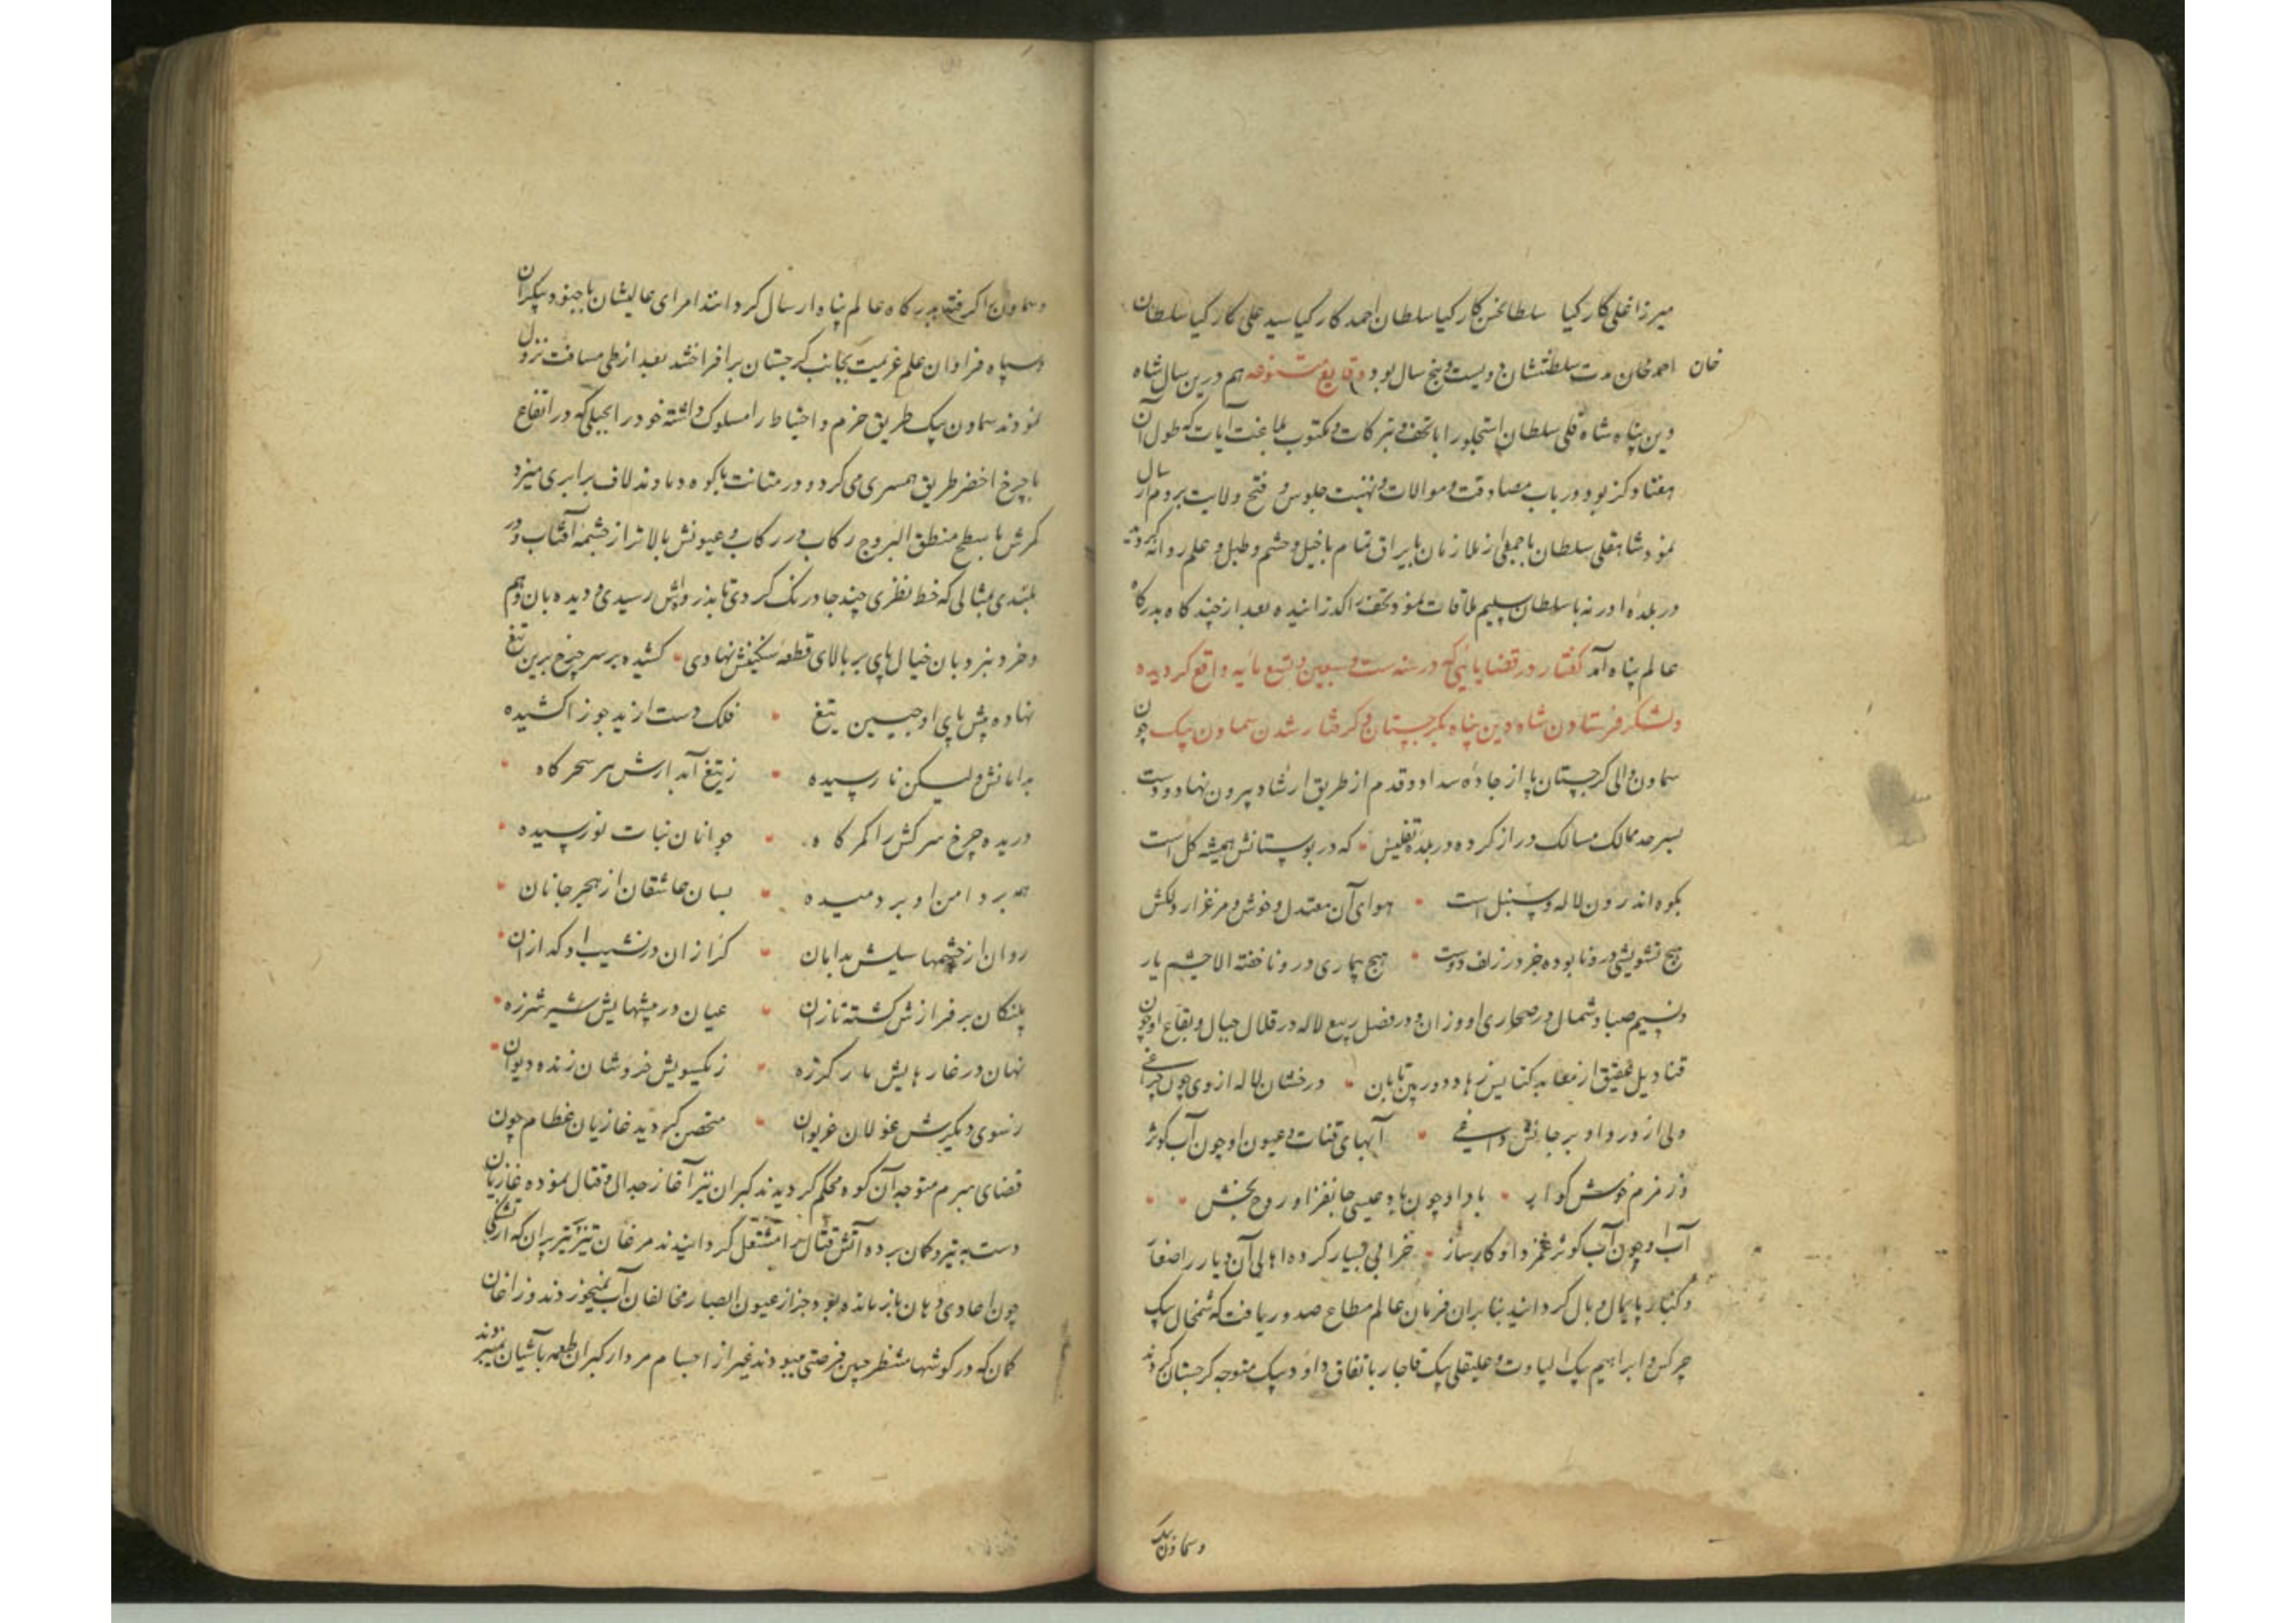 میرزا علی کارکیا سلطانحسن کارکیا سلطان احمد کارکیا سید علی کارکیا سلطان
خان احمد خان مدت سلطنتشان دویست و پنج سال بود وقایع متنوعه هم درین سال شاه
دین پناه شاه قلی سلطان استجلو را با تحف و تبرکات و مکتوب بلاغت آیات که طول آن
هفتاد کز بود در باب مصادقت و موالات و تهنیت جلوس و فتح ولایت بروم ارسال
نمود شاهقلی سلطان با جمعی از ملازمان با یراق تمام با خیل و حشم و طبل و علم روانه کردید
در بلده ادرنه با سلطان سلیم ملاقات نمود و تحف را کذرانیده بعد از چند کاه بدرکاه
عالم پناه آمد گفتار در قضایائی که در سنه ست و سبعین و تسع مایه واقع کردیده
و لشکر فرستادن شاه دین پناه بکرجستان و کرفتار شدن سماون بیک چون
سماون والی کرجستان پا از جاده سداد و قدم از طریق ارشاد بیرون نهاد و دست
بسرحد ممالک مسالک دراز کرده در بلده تفلیس که در بوستانش همیشه کل است
بکوه اندرون لاله و سنبل است هوای آن معتدل و خوش و مرغزار دلکش
هیچ تشویشی درو نابوده جز در زلف دوست هیچ بیماری درو ناخفته الا چشم یار
و نسیم صبا و شمال در صحاری او وزان و در فصل ربیع لاله در قلال جبال و بقاع او چون
قنادیل عقیق از معابد کنایس زهاد دور بین تابان درخشان لاله از وی چون چراغی
ولی از دود او بر جانش داغی آبهای قنات و عیون او چون آب کوثر
و زمزم خوش کوار باد او چون باد عیسی جانفزا و روح بخش
آب او چون آب کوثر غمزدا و کارساز خرابی بسیار کرده اهالی آن دیار را صغار
و کبار پایمال و بال کردانید بنابران فرمان عالم مطاع صدور یافت که شمخال بیک
چرکس و ابراهیم بیک الپاوت و علیقلی بیک قاجار باتفاق داود بیک متوجه کرجستان کردند
و سماون بیک
و سماون را کرفته بدرکاه عالم پناه ارسال کردانند امرای عالیشان با جنود بیکران
و سپاه فراوان علم عزیمت بجانب کرجستان برافراختند بعد از طی مسافت نزول
نمودند سماون بیک طریق حزم و احتیاط را مسلوک داشته خود را بجبلی که در ارتفاع
با چرخ اخضر طریق همسری می کرد و در متانت با کوه دماوند لاف برابری میزد
کمرش با سطح منطق البروج رکاب در رکاب و عیونش بالاتر از چشمه آفتاب و در
بلندی بمثالی که خط نظری چند جا درنک کردی تا بذروه اش رسیدی و دیده بان وهم
و خرد بنردبان خیال پای بر بالای قطعه سنکینش نهادی کشیده بر سر چرخ برین تیغ
نهاده پیش پای او جبین تیغ فلک دست از ید جوزا کشیده
بدامانش ولیکن نا رسیده ز تیغ آبدارش هر سحر کاه
دریده چرخ سرکش را کمر کاه جوانان نبات نو رسیده
همه بر دامن او بر دمیده بسان عاشقان از هجر جانان
روان از چشمها سیلش بدامان کرازان در نشیب او کدازان
پلنکان بر فرازش کشته تازان عیان در بیشهایش شیر شرزه
نهان در غارهایش مار کرزه ز یکسویش خروشان زنده دیوان
ز سوی دیکرش غولان غریوان متحصن کردید غازیان عظام چون
قضای مبرم متوجه آن کوه محکم کردیدند کبران نیز آغاز جدال و قتال نموده غازیان
دست به تیر و کمان برده آتش قتال را مشتعل کردانیدند مرغان تیز پر تیر پران که از تشنکی
چون اعادی دهان باز مانده بود جز از عیون ابصار مخالفان آب نمیخوردند و زاغان
کمان که در کوشها منتظر چنین فرصتی میبودند غیر از اجسام مردار کبران طعمه بآشیان نمیبردند